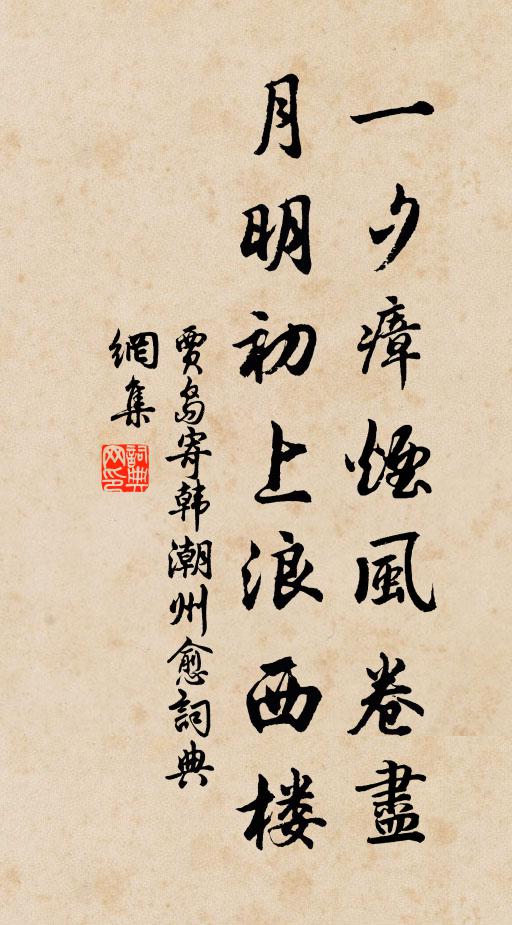 一夕瘴煙風卷盡
月明初上浪西楼
賈島寄韩潮州愈詞典
網集
詞典網印